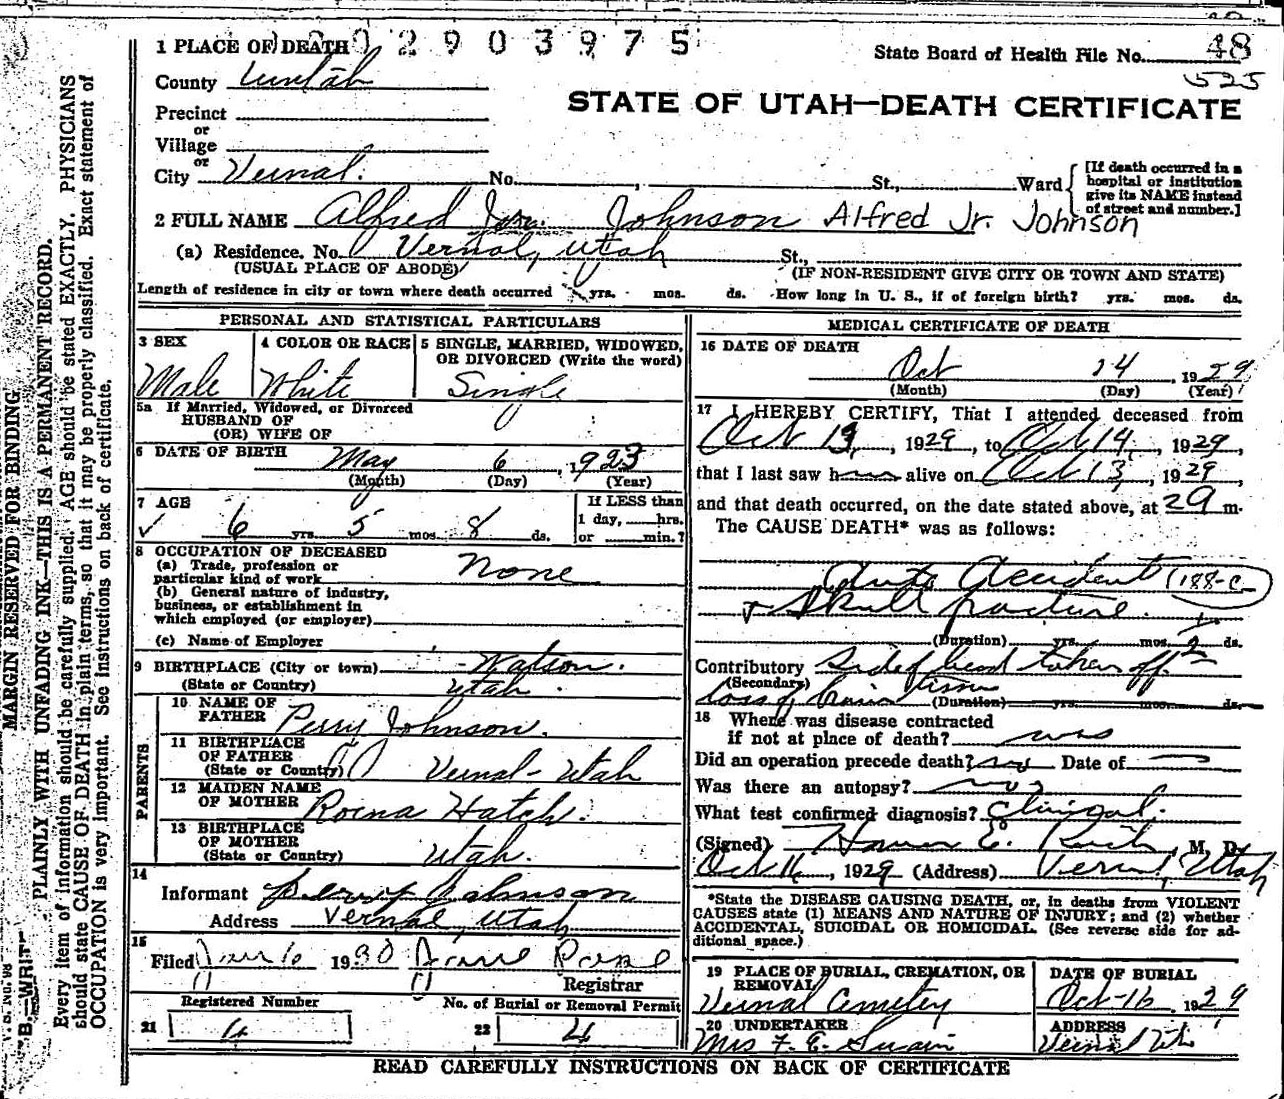 2903975
1 PLACE OF DEATH
State Board of Health File No. 48
525
County Uintah
STATE OF UTAH—DEATH CERTIFICATE
Precinct
or
Village
or
City Vernal. No. , St., Ward
[If death occurred in a hospital or institution give its NAME instead of street and number.]
2 FULL NAME Alfred Jr. Johnson Alfred Jr. Johnson
(a) Residence. No. Vernal, Utah St.,
(USUAL PLACE OF ABODE) (IF NON-RESIDENT GIVE CITY OR TOWN AND STATE)
Length of residence in city or town where death occurred yrs. mos. ds. How long in U. S., if of foreign birth? yrs. mos. ds.
PERSONAL AND STATISTICAL PARTICULARS
3 SEX
Male
4 COLOR OR RACE
White
5 SINGLE, MARRIED, WIDOWED,
OR DIVORCED (Write the word)
Single
5a If Married, Widowed, or Divorced
HUSBAND OF
(OR) WIFE OF
6 DATE OF BIRTH May 6, 1923
(Month) (Day) (Year)
7 AGE
6 yrs. 5 mos. 8 ds.
If LESS than
1 day, hrs.
or min.?
8 OCCUPATION OF DECEASED
(a) Trade, profession or
particular kind of work None
(b) General nature of industry,
business, or establishment in
which employed (or employer)
(c) Name of Employer
9 BIRTHPLACE (City or town) Watson.
(State or Country) Utah.
PARENTS
10 NAME OF
FATHER Perry Johnson.
11 BIRTHPLACE
OF FATHER
(State or Country) Vernal - Utah
12 MAIDEN NAME
OF MOTHER Roena Hatch.
13 BIRTHPLACE
OF MOTHER
(State or Country) Utah.
14
Informant Perry Johnson
Address Vernal, Utah
15
Filed Jan 6 1930
Registrar
Registered Number No. of Burial or Removal Permit
21 4 22 4
MEDICAL CERTIFICATE OF DEATH
16 DATE OF DEATH
Oct 14, 1929
(Month) (Day) (Year)
17 I HEREBY CERTIFY, That I attended deceased from
Oct 13, 1929, to Oct 14, 1929,
that I last saw him alive on Oct 13, 1929,
and that death occurred, on the date stated above, at m.
The CAUSE DEATH* was as follows:
Auto Accident (188-c)
Skull fracture.
(Duration) yrs. mos. ds.
Contributory Side of head taken off
(Secondary)
loss of brain tissue (Duration) yrs. mos. ds.
18 Where was disease contracted
if not at place of death?
Did an operation precede death? no Date of
Was there an autopsy? no
What test confirmed diagnosis? Clinical.
(Signed) Homer E. Rich, M. D.
Oct 16, 1929 (Address) Vernal, Utah
*State the DISEASE CAUSING DEATH, or, in deaths from VIOLENT
CAUSES state (1) MEANS AND NATURE OF INJURY; and (2) whether
ACCIDENTAL, SUICIDAL OR HOMICIDAL. (See reverse side for ad-
ditional space.)
19 PLACE OF BURIAL, CREMATION, OR
REMOVAL
Vernal Cemetery
DATE OF BURIAL
Oct-16 1929
20 UNDERTAKER
Mrs F. E. Swain
ADDRESS
Vernal Ut.
READ CAREFULLY INSTRUCTIONS ON BACK OF CERTIFICATE
V. S. No. 98
MARGIN RESERVED FOR BINDING
B.—WRITE PLAINLY WITH UNFADING INK—THIS IS A PERMANENT RECORD.
Every item of information should be carefully supplied. AGE should be stated EXACTLY. PHYSICIANS
should state CAUSE OF DEATH in plain terms, so that it may be properly classified. Exact statement of
OCCUPATION is very important. See instructions on back of certificate.